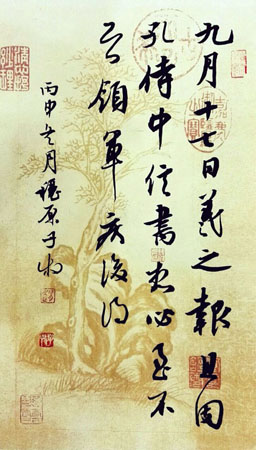 九月十七日羲之報且因
孔侍中信書想必至不
知領軍疾後問
丙申冬月